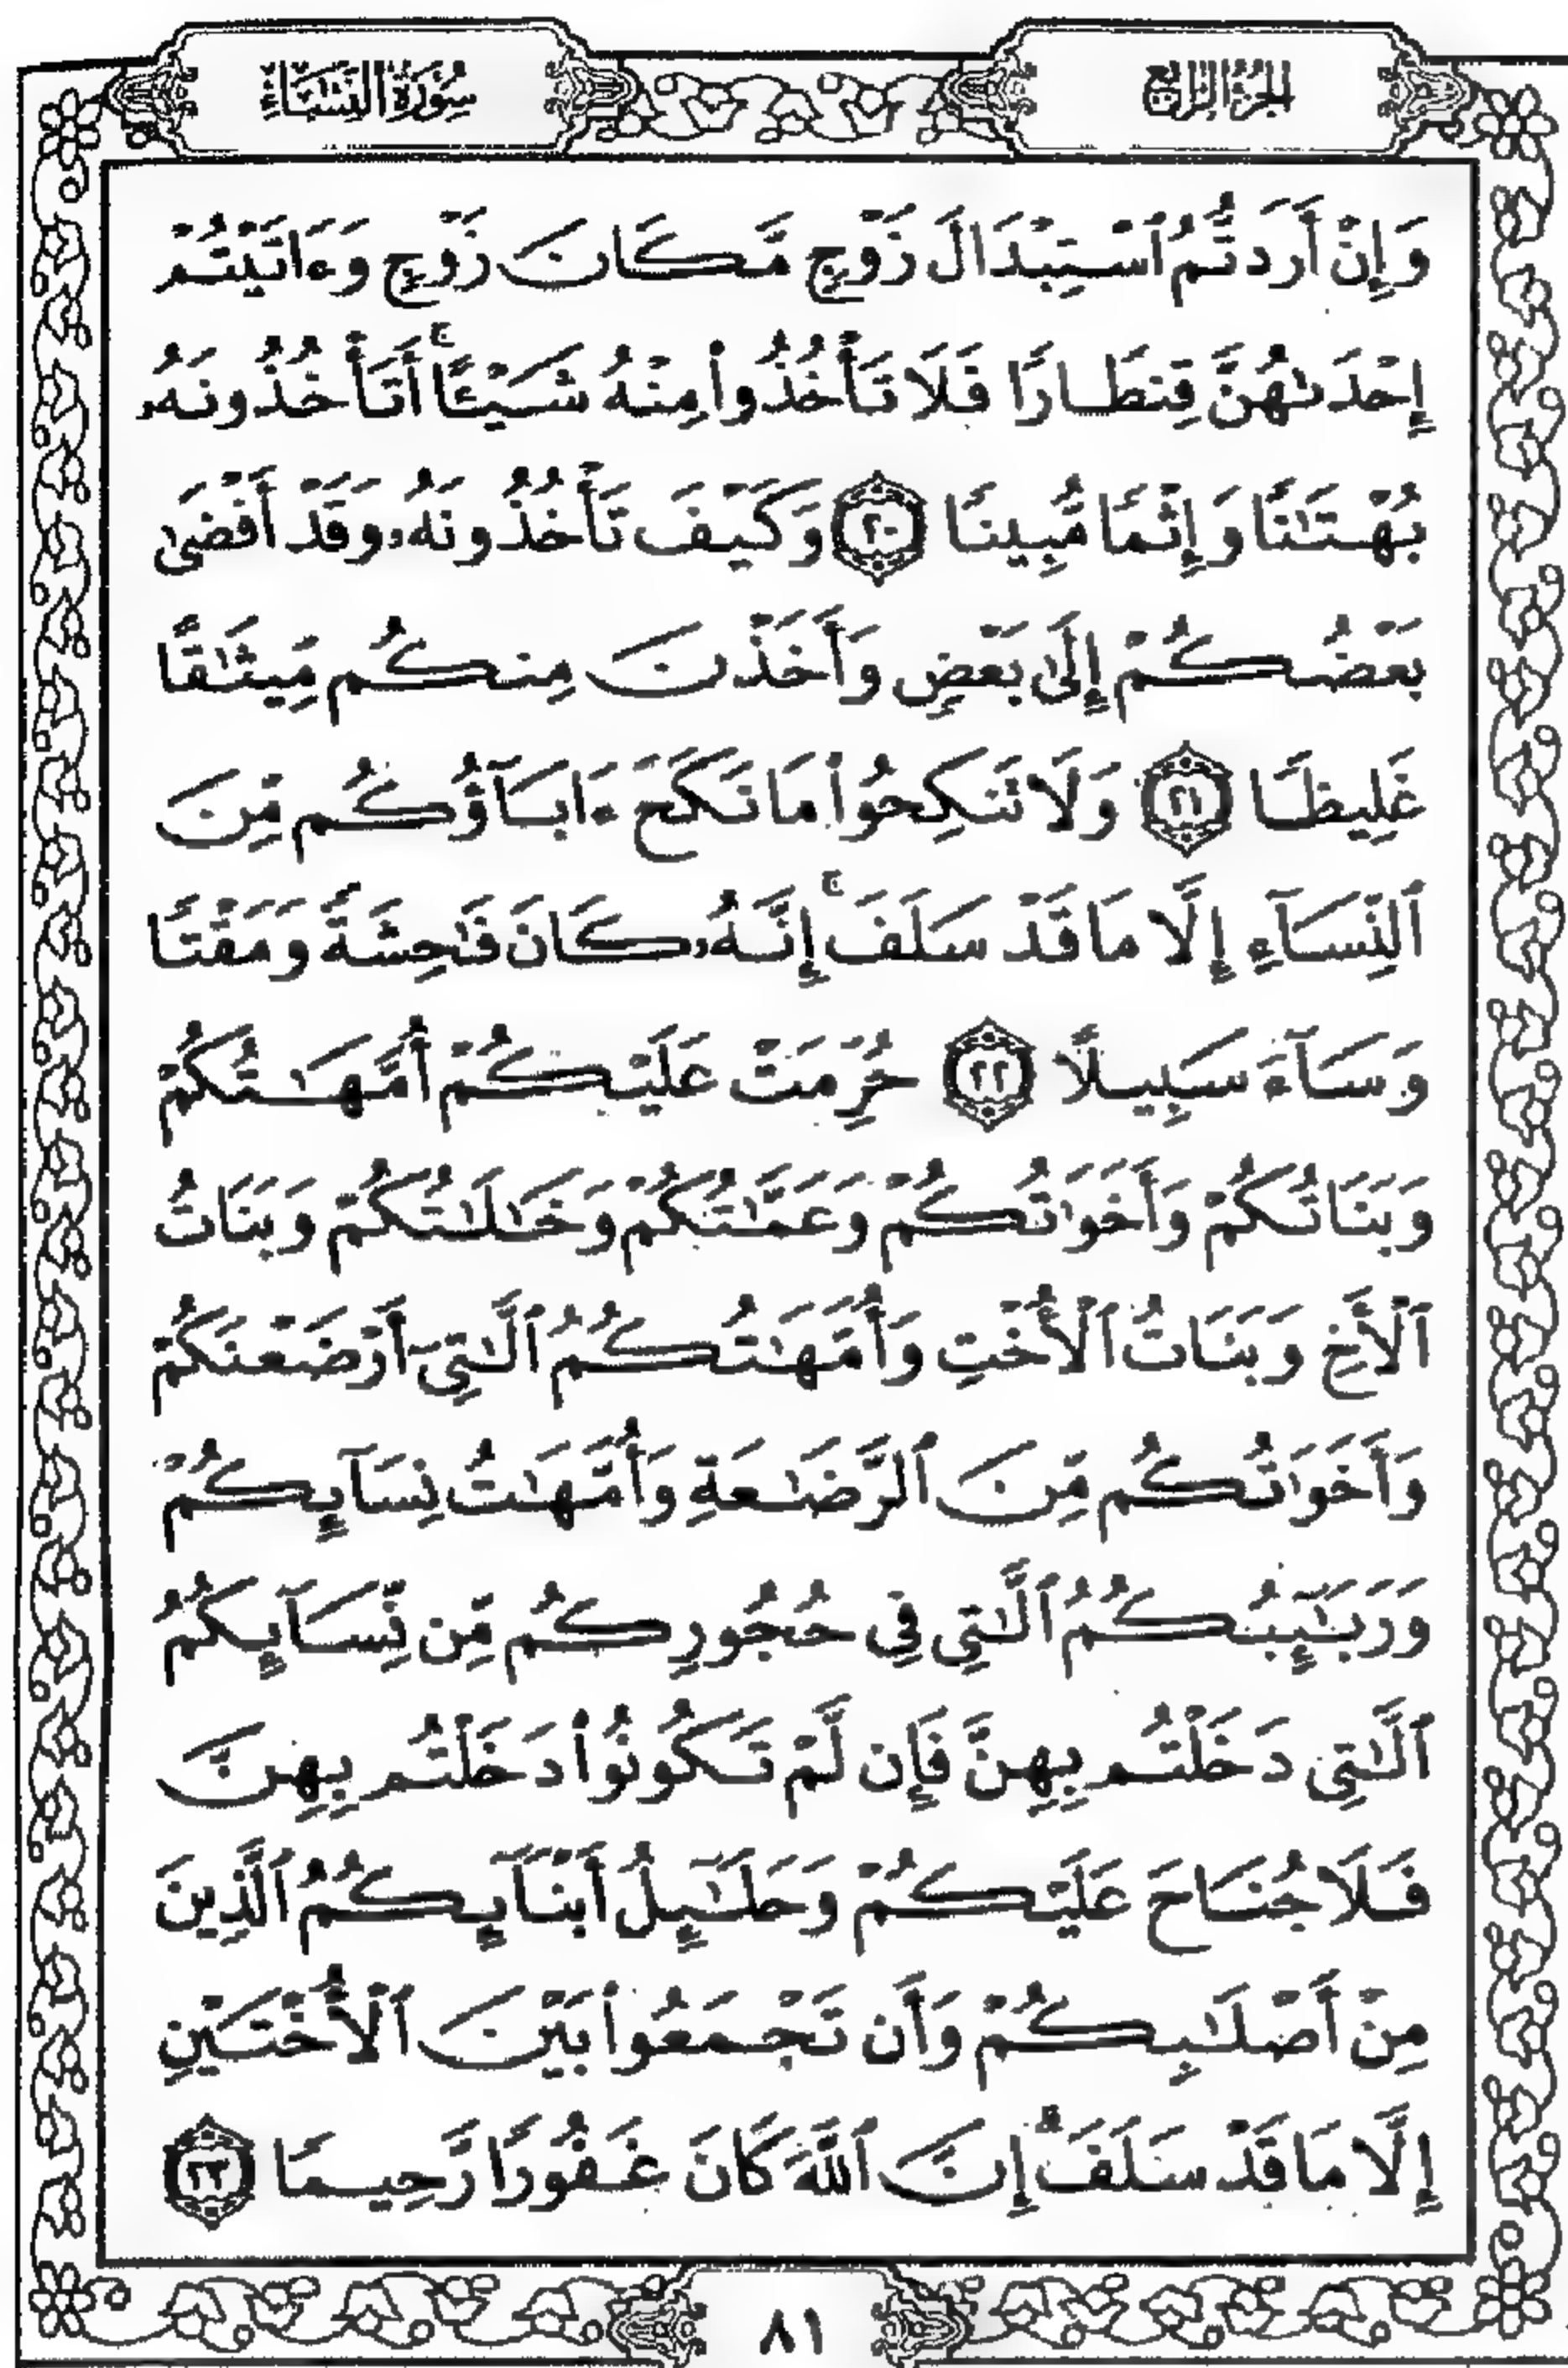 سُورَةُ النِّسَاءِ الجُزْءُ الرَّابِعُ
وَإِنْ أَرَدتُّمُ ٱسْتِبْدَالَ زَوْجٍ مَّكَانَ زَوْجٍ وَءَاتَيْتُمْ
إِحْدَىٰهُنَّ قِنطَارًا فَلَا تَأْخُذُوا۟ مِنْهُ شَيْـًٔا ۚ أَتَأْخُذُونَهُۥ
بُهْتَٰنًا وَإِثْمًا مُّبِينًا ٢٠ وَكَيْفَ تَأْخُذُونَهُۥ وَقَدْ أَفْضَىٰ
بَعْضُكُمْ إِلَىٰ بَعْضٍ وَأَخَذْنَ مِنكُم مِّيثَٰقًا
غَلِيظًا ٢١ وَلَا تَنكِحُوا۟ مَا نَكَحَ ءَابَآؤُكُم مِّنَ
ٱلنِّسَآءِ إِلَّا مَا قَدْ سَلَفَ ۚ إِنَّهُۥ كَانَ فَٰحِشَةً وَمَقْتًا
وَسَآءَ سَبِيلًا ٢٢ حُرِّمَتْ عَلَيْكُمْ أُمَّهَٰتُكُمْ
وَبَنَاتُكُمْ وَأَخَوَٰتُكُمْ وَعَمَّٰتُكُمْ وَخَٰلَٰتُكُمْ وَبَنَاتُ
ٱلْأَخِ وَبَنَاتُ ٱلْأُخْتِ وَأُمَّهَٰتُكُمُ ٱلَّٰتِىٓ أَرْضَعْنَكُمْ
وَأَخَوَٰتُكُم مِّنَ ٱلرَّضَٰعَةِ وَأُمَّهَٰتُ نِسَآئِكُمْ
وَرَبَٰٓئِبُكُمُ ٱلَّٰتِى فِى حُجُورِكُم مِّن نِّسَآئِكُمُ
ٱلَّٰتِى دَخَلْتُم بِهِنَّ فَإِن لَّمْ تَكُونُوا۟ دَخَلْتُم بِهِنَّ
فَلَا جُنَاحَ عَلَيْكُمْ وَحَلَٰٓئِلُ أَبْنَآئِكُمُ ٱلَّذِينَ
مِنْ أَصْلَٰبِكُمْ وَأَن تَجْمَعُوا۟ بَيْنَ ٱلْأُخْتَيْنِ
إِلَّا مَا قَدْ سَلَفَ ۗ إِنَّ ٱللَّهَ كَانَ غَفُورًا رَّحِيمًا ٢٣
٨١